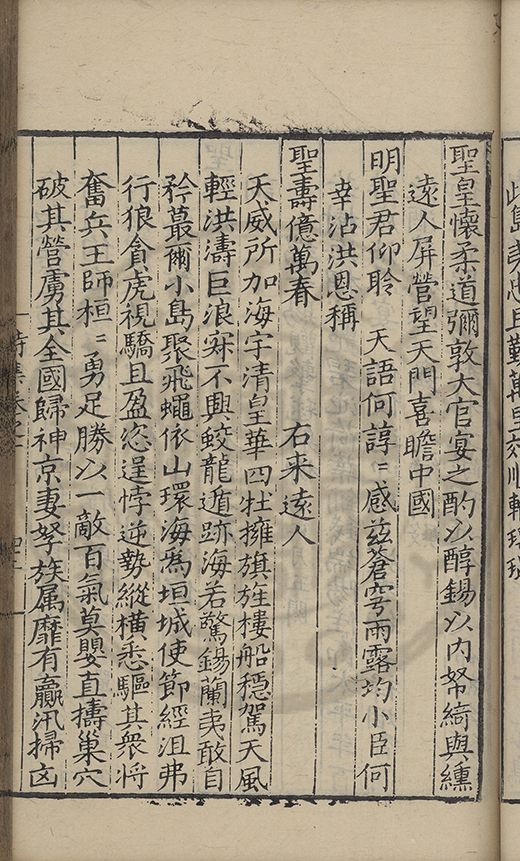 聖皇懷柔道彌敦大官宴之酌以醇錫以內帑綺與纁
遠人屏營望天門喜瞻中國
明聖君仰聆　天語何諄〻感茲蒼穹雨露均小臣何
幸沾洪恩稱
聖壽億萬春　　右来遠人
天威所加海宇清皇華四牡擁旗旌樓船穩駕天風
輕洪濤巨浪寂不興蛟龍遁跡海若驚錫蘭夷敢自
矜蕞爾小島聚飛蠅依山環海爲垣城使節經沮弗
行狼貪虎視驕且盈恣逞悖逆勢縱橫悉驅其衆將
奮兵王師桓〻勇足勝以一敵百氣莫嬰直擣巢穴
破其營虜其全國歸神京妻孥族属靡有贏汛掃凶